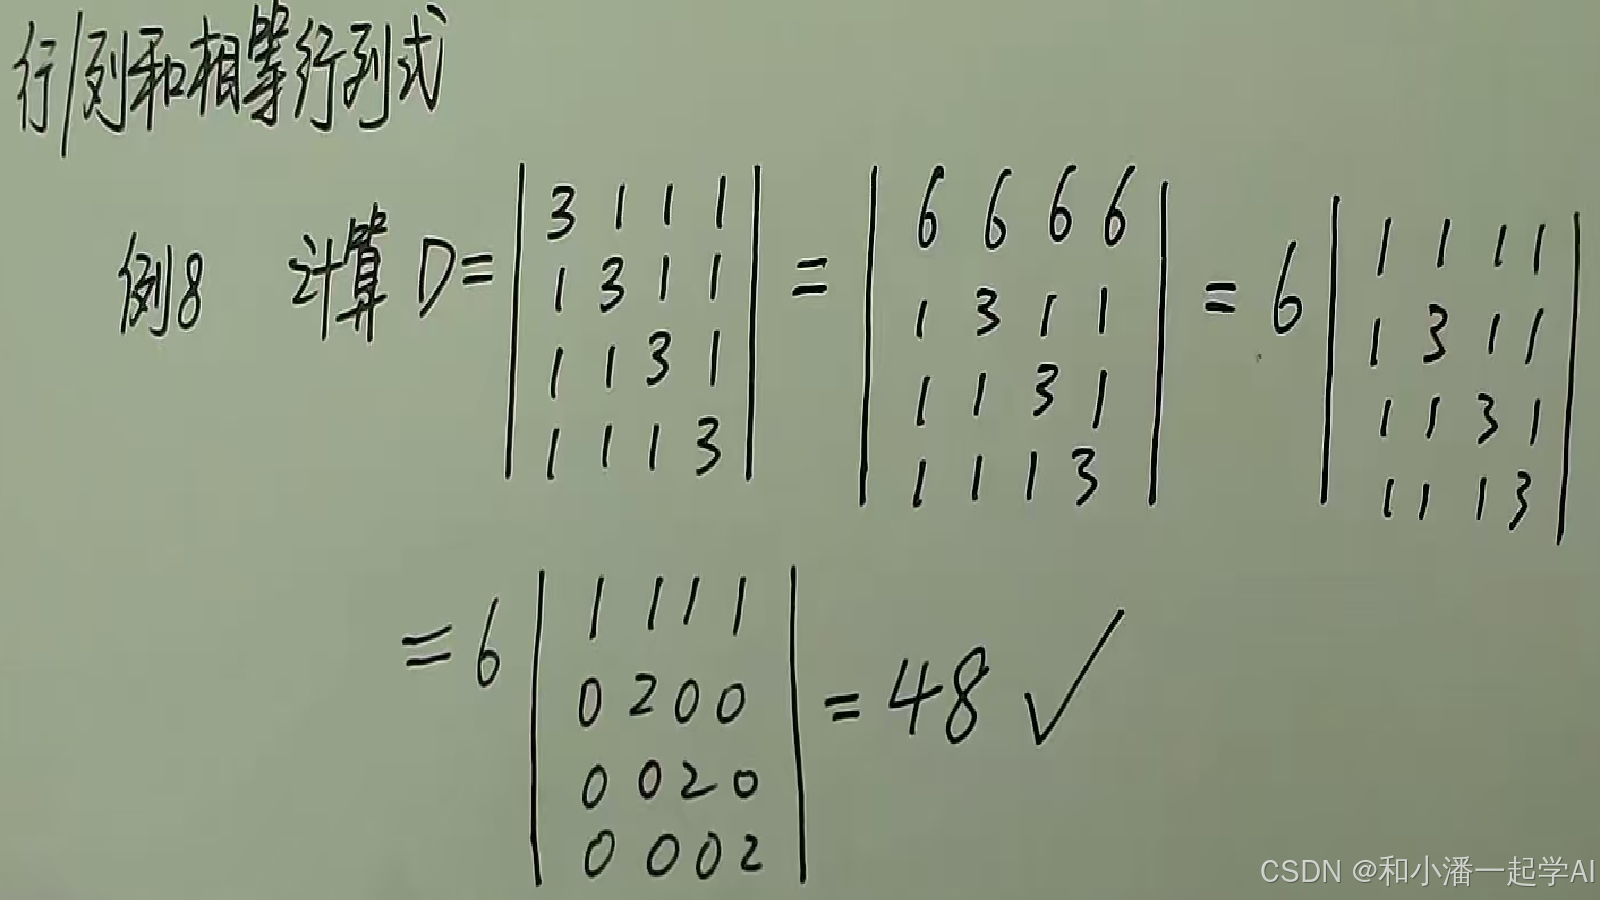 行/列和相等行列式
例8 计算 D= | 3 1 1 1 | = | 6 6 6 6 | = 6 | 1 1 1 1 |
| 1 3 1 1 | | 1 3 1 1 | | 1 3 1 1 |
| 1 1 3 1 | | 1 1 3 1 | | 1 1 3 1 |
| 1 1 1 3 | | 1 1 1 3 | | 1 1 1 3 |
= 6 | 1 1 1 1 | = 48 ✓
| 0 2 0 0 |
| 0 0 2 0 |
| 0 0 0 2 |
CSDN @和小潘一起学AI